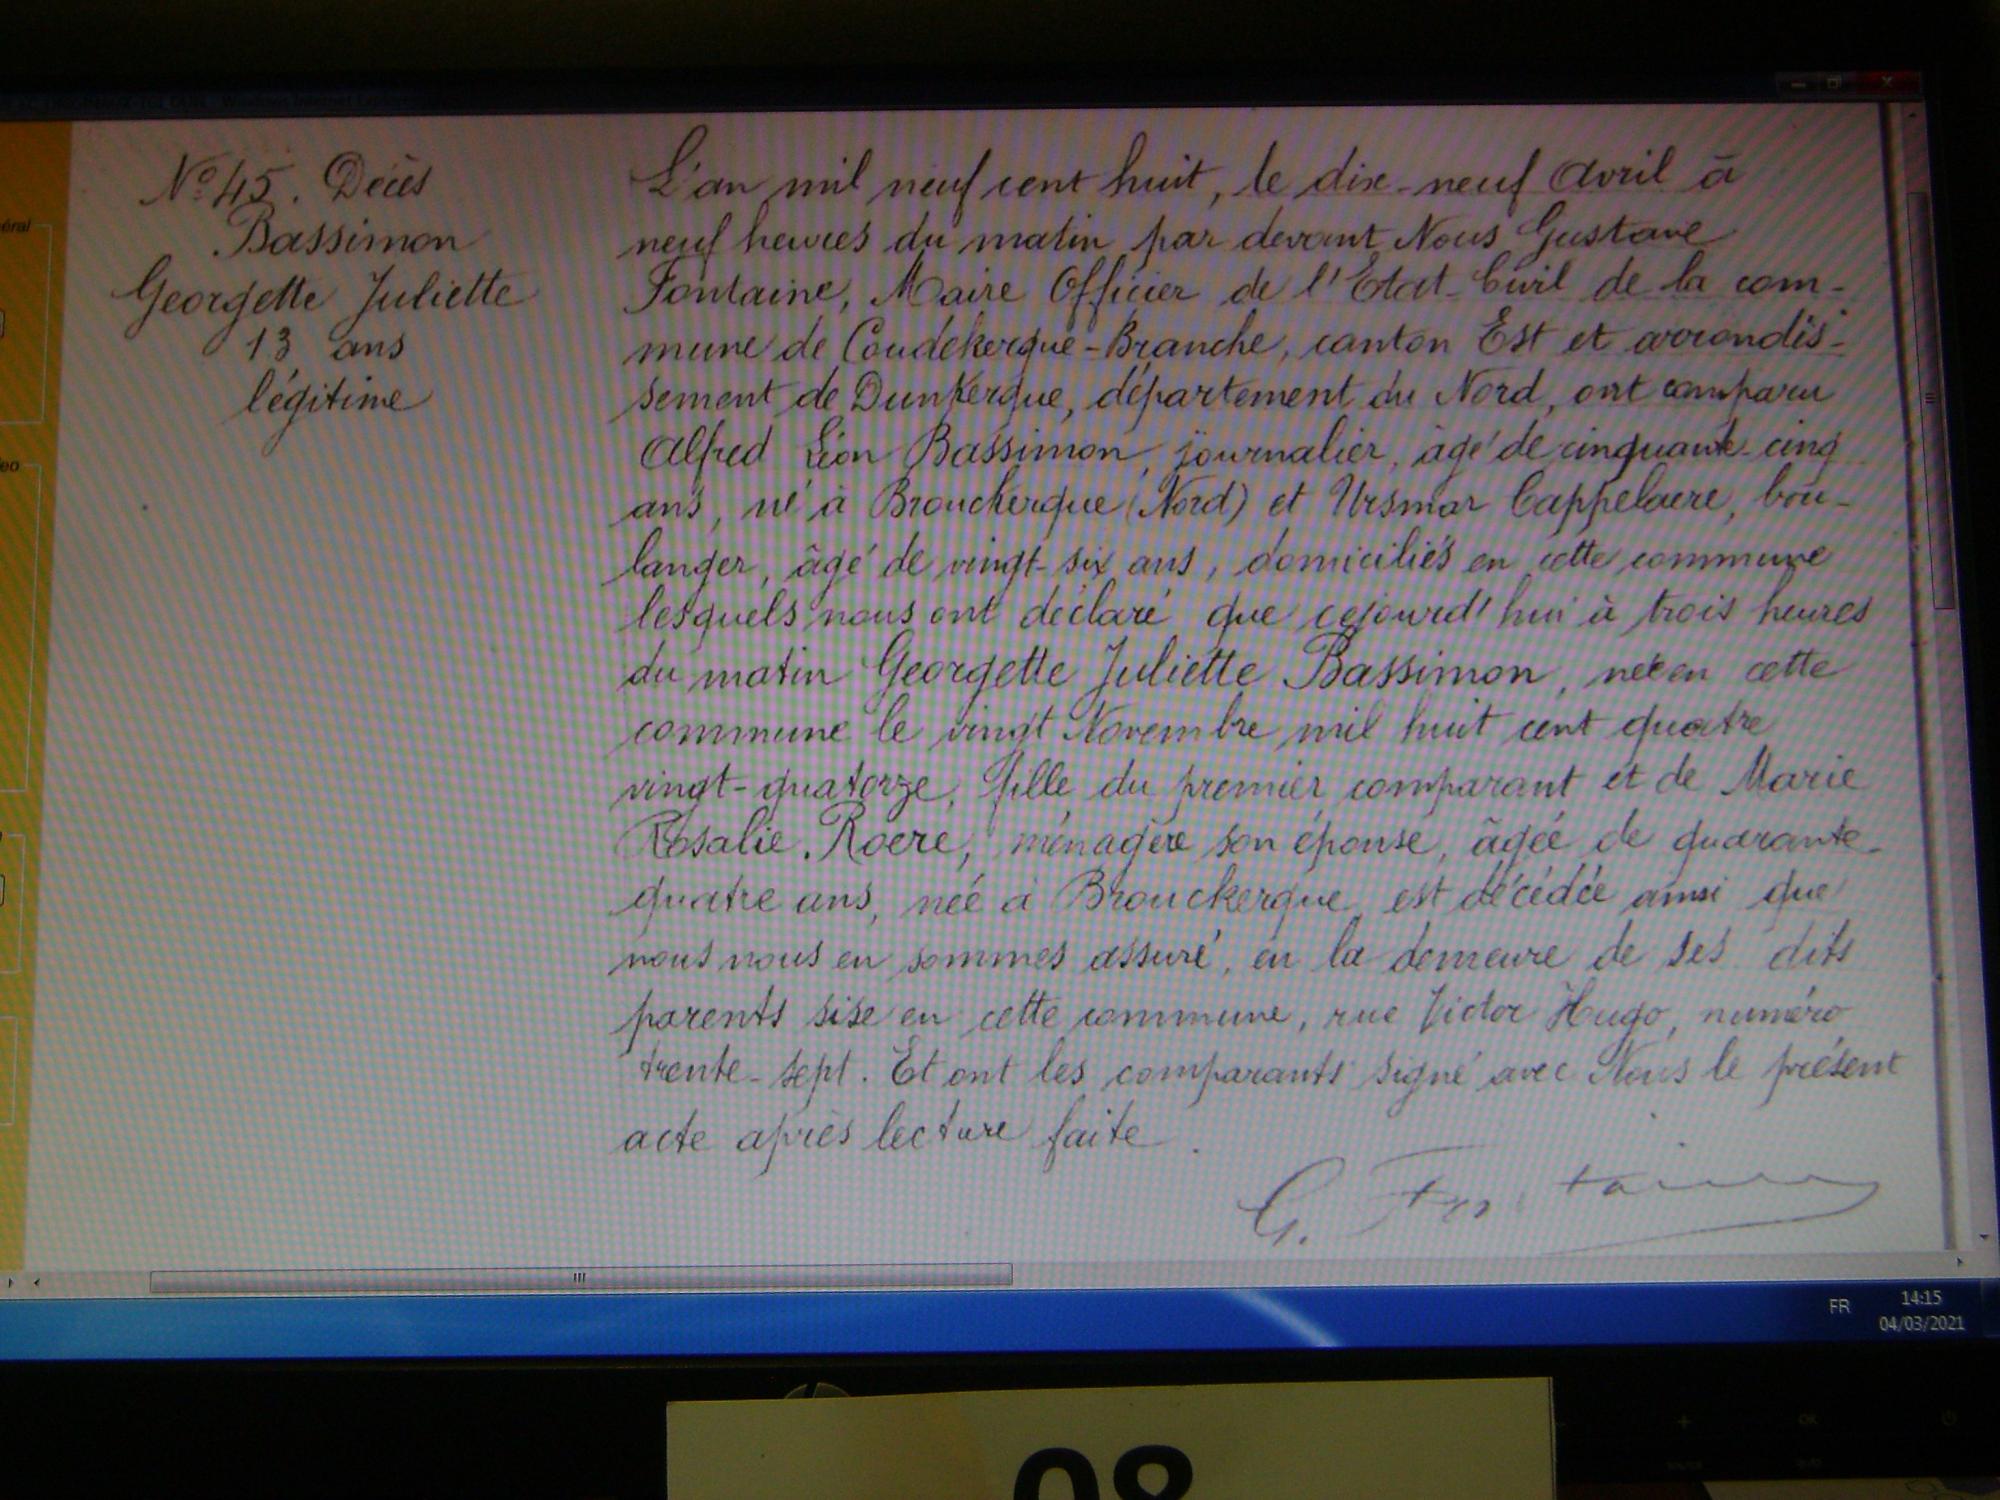 Nº 45. Décès
Bassimon
Georgette Juliette
13 ans
légitime
L'an mil neuf cent huit, le dix-neuf Avril à
neuf heures du matin par devant Nous Gustave
Fontaine, Maire Officier de l'Etat-Civil de la com-
mune de Coudekerque-Branche, canton Est et arrondis-
sement de Dunkerque, département du Nord, ont comparu
Alfred Léon Bassimon, journalier, âgé de cinquante-cinq
ans, né à Brouckerque (Nord) et Ursmar Cappelaere, bou-
langer, âgé de vingt-six ans, domiciliés en cette commune
lesquels nous ont déclaré que cejourd'hui à trois heures
du matin Georgette Juliette Bassimon, née en cette
commune le vingt Novembre mil huit cent quatre
vingt-quatorze, fille du premier comparant et de Marie
Rosalie Roere, ménagère son épouse, âgée de quarante-
quatre ans, née à Brouckerque, est décédée ainsi que
nous nous en sommes assuré, en la demeure de ses dits
parents sise en cette commune, rue Victor Hugo, numéro
trente-sept. Et ont les comparants signé avec Nous le présent
acte après lecture faite.
G. Fontaine
FR
14:15
04/03/2021
08